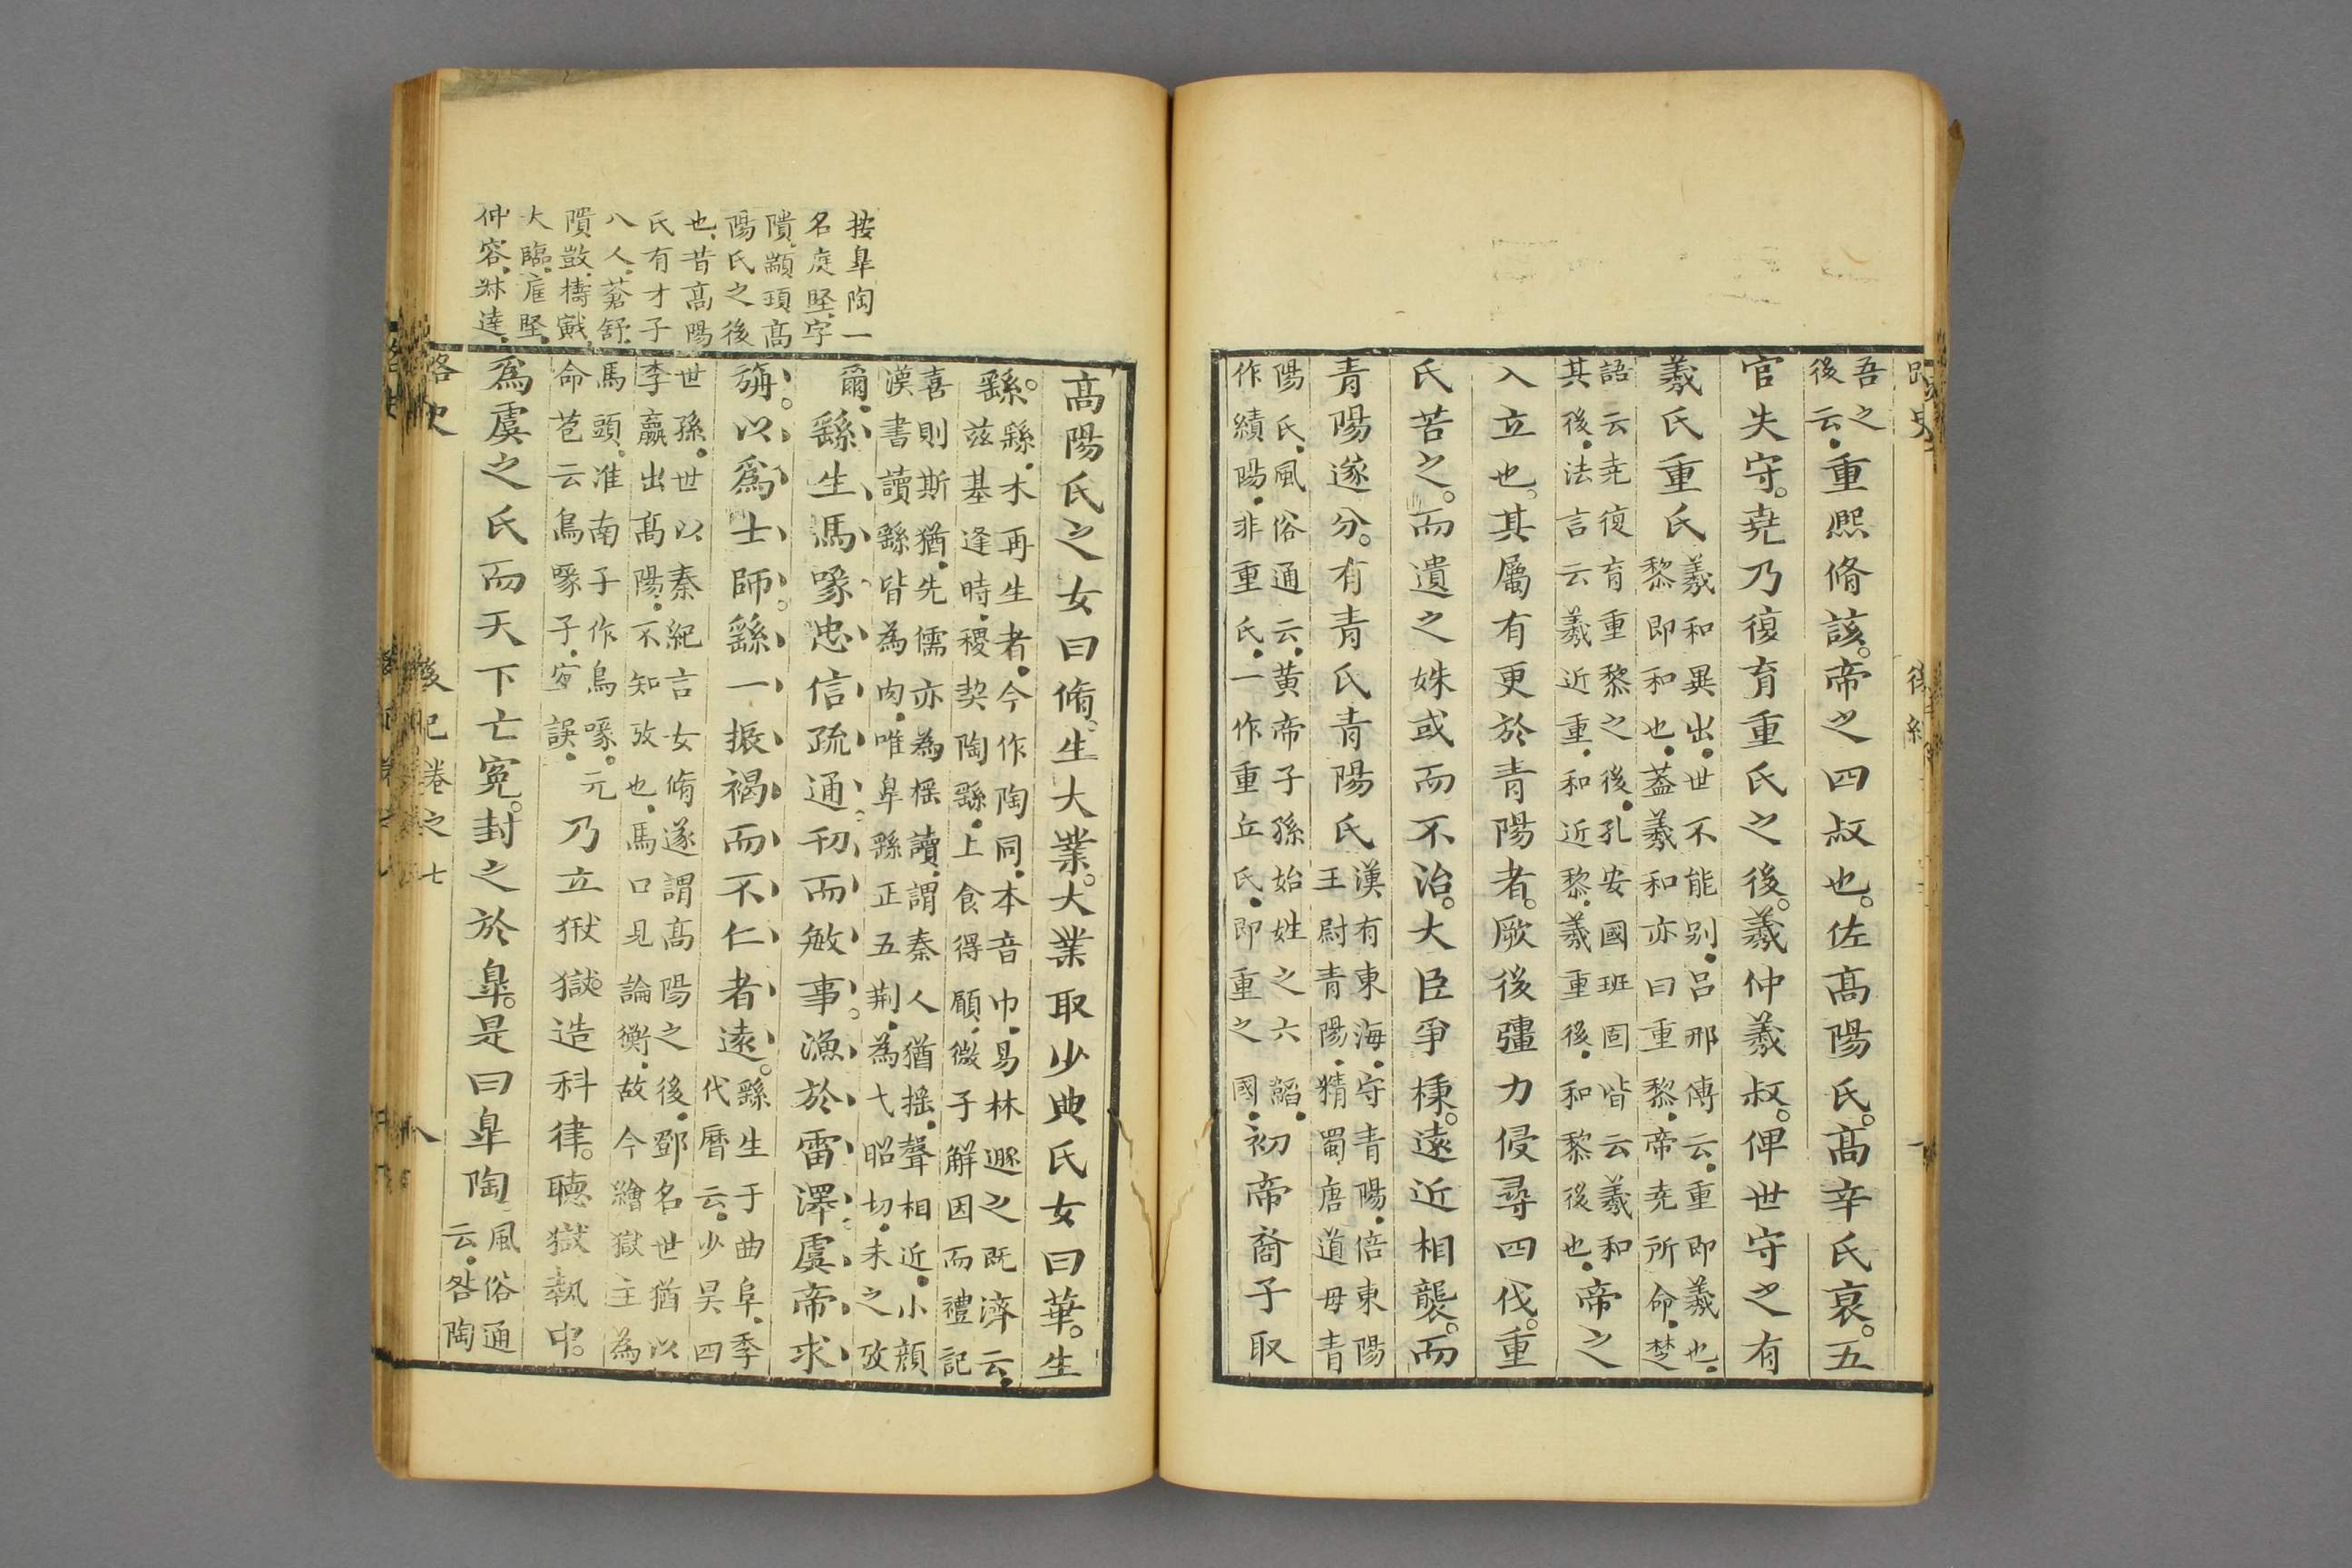 吾之
後云重熙脩該帝之四叔也佐髙陽氏髙辛氏衰五
官失守堯乃復育重氏之後羲仲羲叔俾世守之有
羲氏重氏羲和異出世不能别吕邢傅云重即羲也
黎即和也葢羲和亦曰重黎帝尭所命楚
語云尭復育重黎之後孔安國班固皆云羲和
其後法言云羲近重和近黎羲重後和黎後也帝之
入立也其屬有更於青陽者厥後彊力侵尋四伐重
氏苦之而遺之姝或而不治大臣爭權遠近相襲而
青陽遂分有青氏青陽氏漢有東海守青陽倍東陽
王尉青陽精蜀唐道毋青
陽氏風俗通云黄帝子孫始姓之六韜
作績陽非重氏一作重丘氏即重之國初帝裔子取
髙陽氏之女曰脩生大業大業取少典氏女曰華生
繇繇木再生者今作陶同本音巾易林遯之既濟云
兹基逢時稷契陶繇上食得願微子解因而禮記
喜則斯猶先儒亦為榣讀謂秦人猶摇聲相近小顔
漢書讀繇皆為肉唯臯繇正五荆為弋昭切未之攷
爾繇生馮喙忠信疏通刅而敏事漁於雷澤虞帝求
旃以爲士師繇一振褐而不仁者遠繇生于曲阜季
代曆云少昊四
世孫世以秦紀言女脩遂謂髙陽之後鄧名世猶以
李嬴出髙陽不知攷也馬口見論衡故今繪獄主為
馬頭准南子作鳥喙元
命苞云鳥喙子寔誤乃立犾獄造科律聴獄執中
爲虞之氏而天下亡寃封之於臯是曰臯陶風俗通
云咎陶
路史
後紀卷之七
八
按臯陶一
名庭堅字
隤顓頊髙
陽氏之後
也昔髙陽
氏有才子
八人蒼舒
隤敱檮戭
大臨厖堅
仲容叔達